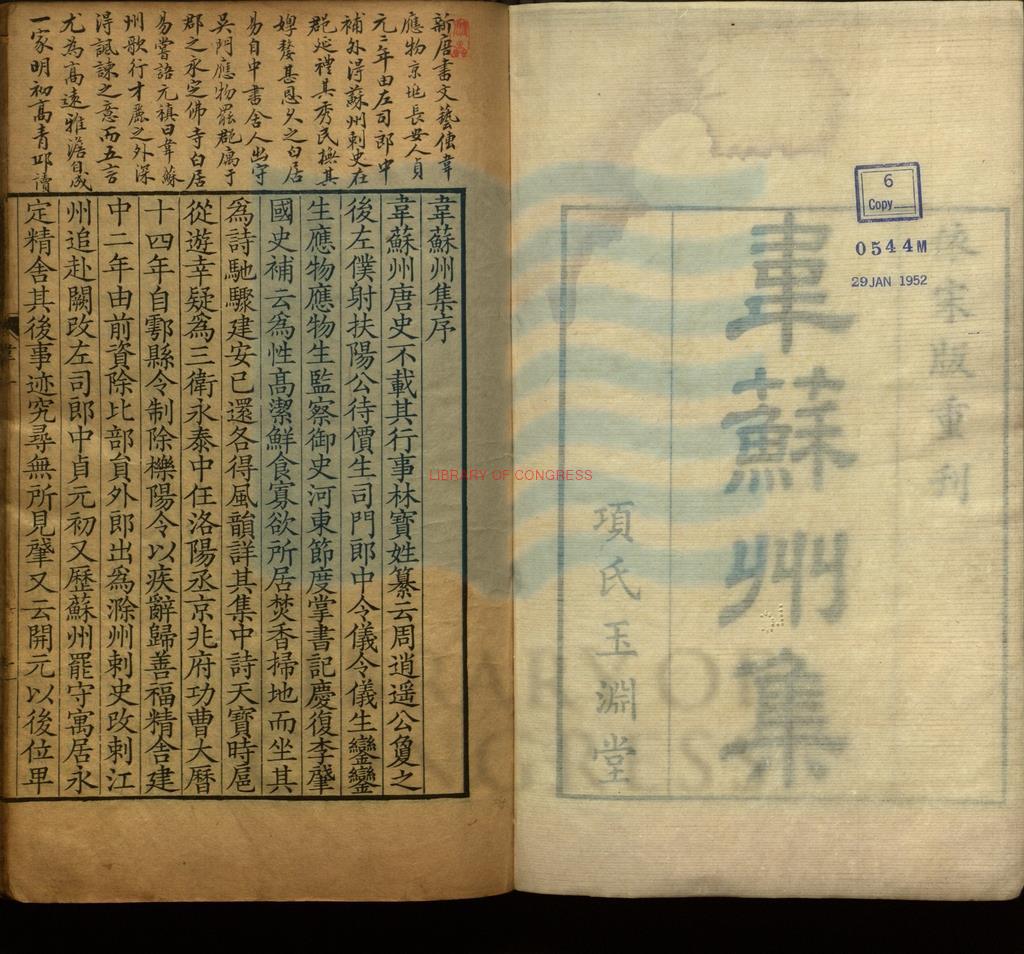 依宋版重刊
韋蘇州集
項氏玉淵堂
6
Copy
0544M
29 JAN 1952
LIBRARY OF CONGRESS
新唐書文藝傳韋
應物京地長安人貞
元二年由左司郎中
補外得蘇州刺史在
郡延禮其秀民撫其
惸嫠甚恩久之白居
易自中書舍人出守
吳門應物罷郡寓于
郡之永定佛寺白居
易嘗語元稹曰韋蘇
州歌行才麗之外深
得諷諫之意而五言
尤為高遠雅澹自成
一家明初高青邱讀
韋蘇州集序
韋蘇州唐史不載其行事林寶姓纂云周逍遥公敻之
後左僕射扶陽公待價生司門郎中令儀令儀生鑾鑾
生應物應物生監察御史河東節度掌書記慶復李肈
國史補云為性髙潔鮮食寡欲所居焚香掃地而坐其
為詩馳驟建安已還各得風韻詳其集中詩天寶時扈
從遊幸疑為三衛永泰中任洛陽丞京兆府功曹大曆
十四年自鄠縣令制除櫟陽令以疾辭歸善福精舍建
中二年由前資除比部貟外郎出為滁州刺史改刺江
州追赴闕改左司郎中貞元初又歷蘇州罷守寓居永
定精舍其後事迹究尋無所見肈又云開元以後位卑